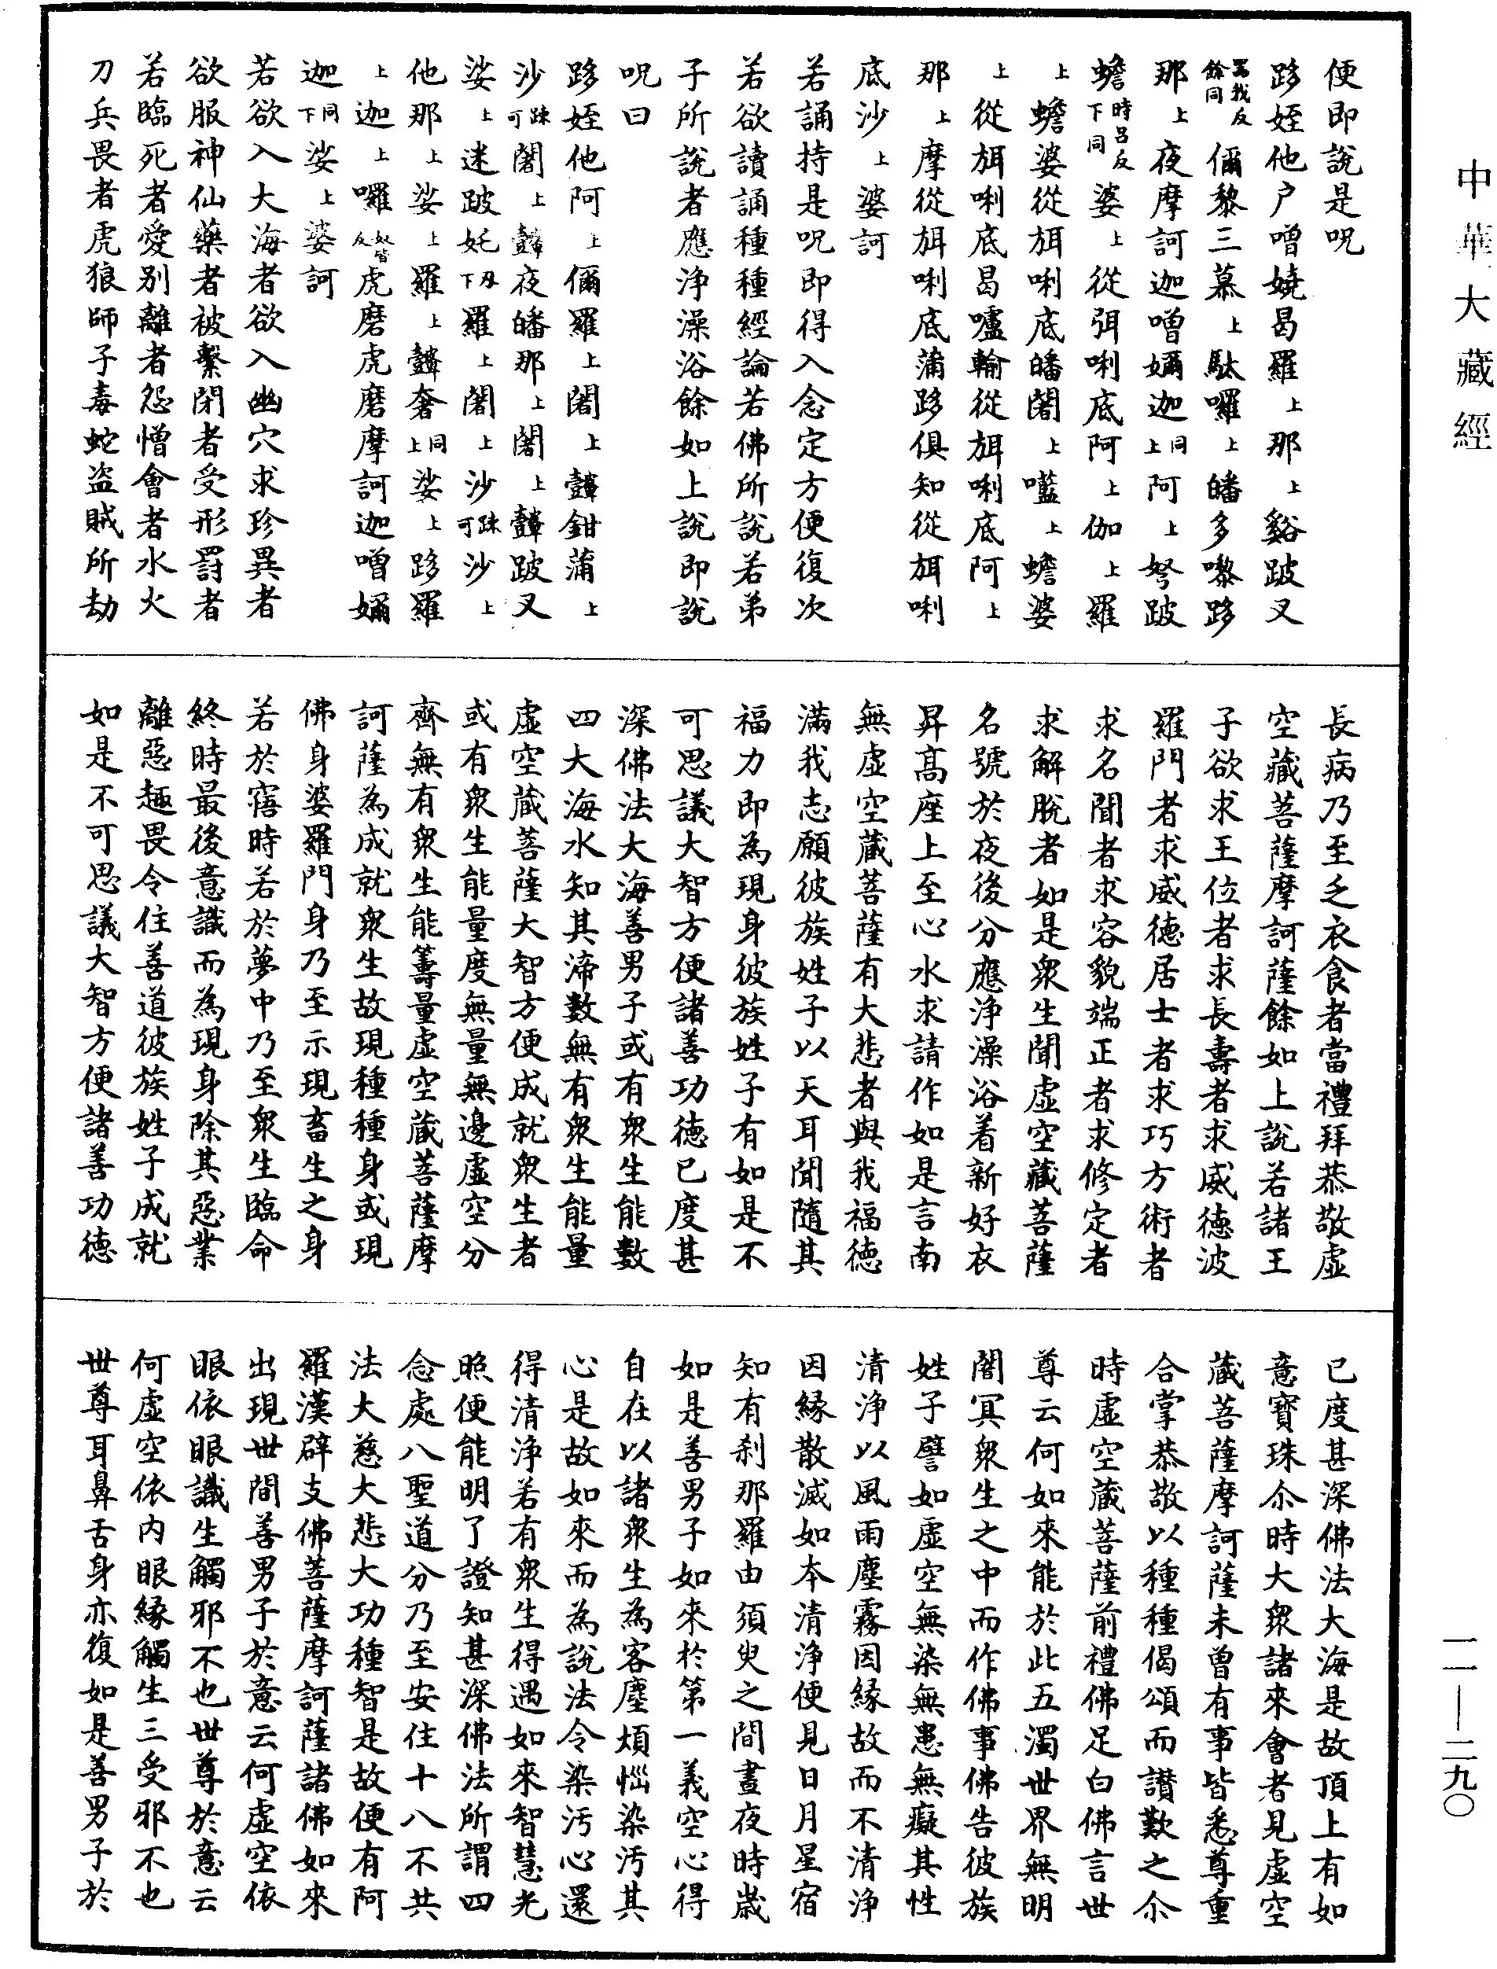 中華大藏經
便即說是呪
路姪他户噌嬈曷羅上那上谿跋叉
罵我反餘同儞黎三慕上馱囉上皤多嚟路
那上夜摩訶迦噌嬭迦上同阿上弩跋
蟾時呂反下同婆上從弭唎底阿上伽上羅
上蟾婆從弭唎底皤闍上嚂上蟾婆
上從弭唎底曷嚧輸從弭唎底阿上
那上摩從弭唎底蒲路俱知從弭唎
底沙上婆訶
若誦持是呪即得入念定方便復次
若欲讀誦種種經論若佛所說若弟
子所說者應淨澡浴餘如上說即說
呪曰
路姪他阿上儞羅上闍上鼙鉗蒲上
沙疎可闍上鼙夜皤那上闍上鼙跛叉
娑上迷跛奼丑下羅上闍上沙疎可沙上
他那上娑上羅上鼙奢上同娑上路羅
上迦上囉奴皆反虎磨虎磨摩訶迦噌嬭
迦下同娑上婆訶
若欲入大海者欲入幽穴求珍異者
欲服神仙藥者被繫閉者受形罰者
若臨死者愛別離者怨憎會者水火
刀兵畏者虎狼師子毒蛇盜賊所劫
長病乃至乏衣食者當禮拜恭敬虛
空藏菩薩摩訶薩餘如上說若諸王
子欲求王位者求長壽者求威德波
羅門者求威德居士者求巧方術者
求名聞者求容貌端正者求修定者
求解脫者如是眾生聞虛空藏菩薩
名號於夜後分應淨澡浴着新好衣
昇高座上至心水求請作如是言南
無虛空藏菩薩有大悲者與我福德
滿我志願彼族姓子以天耳聞隨其
福力即為現身彼族姓子有如是不
可思議大智方便諸善功德已度甚
深佛法大海善男子或有眾生能數
四大海水知其渧數無有眾生能量
虛空藏菩薩大智方便成就眾生者
或有眾生能量度無量無邊虛空分
齊無有眾生能籌量虛空藏菩薩摩
訶薩為成就眾生故現種種身或現
佛身婆羅門身乃至示現畜生之身
若於寤時若於夢中乃至眾生臨命
終時最後意識而為現身除其惡業
離惡趣畏令住善道彼族姓子成就
如是不可思議大智方便諸善功德
已度甚深佛法大海是故頂上有如
意寶珠尒時大眾諸來會者見虛空
藏菩薩摩訶薩未曾有事皆悉尊重
合掌恭敬以種種偈頌而讚歎之尒
時虛空藏菩薩前禮佛足白佛言世
尊云何如來能於此五濁世界無明
闇冥眾生之中而作佛事佛告彼族
姓子譬如虛空無染無恚無癡其性
清淨以風雨塵霧因緣故而不清淨
因緣散滅如本清淨便見日月星宿
知有剎那羅由須臾之間晝夜時歲
如是善男子如來於第一義空心得
自在以諸眾生為客塵煩惱染污其
心是故如來而為說法令染污心還
得清淨若有眾生得遇如來智慧光
照便能明了證知甚深佛法所謂四
念處八聖道分乃至安住十八不共
法大慈大悲大功種智是故便有阿
羅漢辟支佛菩薩摩訶薩諸佛如來
出現世間善男子於意云何虛空依
眼依眼識生觸邪不也世尊於意云
何虛空依內眼緣觸生三受邪不也
世尊耳鼻舌身亦復如是善男子於
一一—二九〇